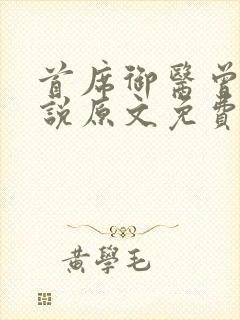 首席御醫曾
說原文免費
黃學毛